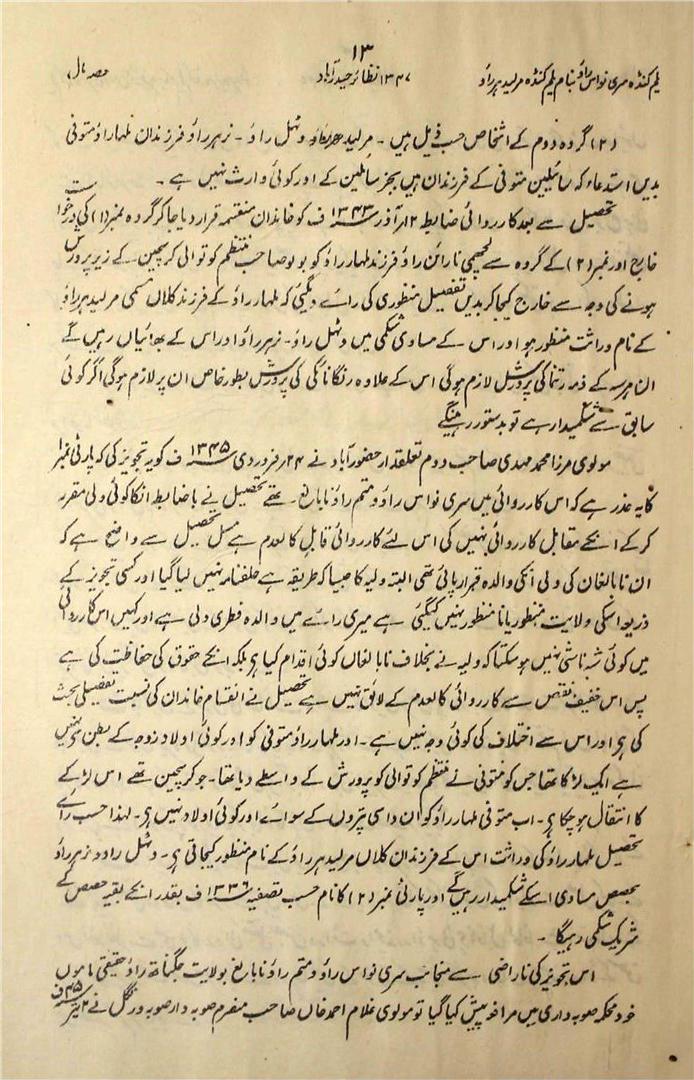 ۱۳
یلم کنڈہ سری نواس راؤ بنام یلم کنڈہ مرلیدہر راؤ ۱۳۴۷ نظائر حیدرآباد حصہ مال
(۲) گروہ دوم کے اشخاص حسب ذیل ہیں ۔ مرلیدہر راؤ وٹھل راؤ ۔ نرہر راؤ فرزندان ملہار راؤ متوفی
بدیں استدعاء کہ سائلین متوفی کے فرزندان ہیں بجز سائلین کے اور کوئی وارث نہیں ہے ۔
تحصیل سے بعد کارروائی ضابطہ ۱۲ر آذر ۱۳۴۳ ف کو خاندان منقسمہ قرار دیا جا کر گروہ نمبر (۱) کی درخواست
خارج اور نمبر (۲) کے گروہ سے لچھمی نارائن راؤ فرزند ملہار راؤ کو بولو صاحب منتظم کوتوالی کرسچین کے زیر پرورش
ہونے کی وجہ سے خارج کیا جا کر بدیں تفصیل منظوری کی رائے دیگئی کہ ملہار راؤ کے فرزند کلاں مسمی مرلیدہر راؤ
کے نام وراثت منظور ہو اور اس کے مساوی شکمی میں وٹھل راؤ ۔ نرہر راؤ اور اس کے بھائیاں رہیں گے
ان ہر سہ کے ذمہ رتنما کی پرورش لازم ہوگی اس کے علاوہ رنگا نائگی کی پرورش بطور خاص ان پر لازم ہوگی اگر کوئی
سابق سے شکمیدار ہے تو بدستور رہینگے
مولوی مرزا محمد مہدی صاحب دوم تعلقدار حضورآباد نے ۲۴ر فروردی ۱۳۴۵ ف کو یہ تجویز کی کہ پارٹی نمبر ۱
کا یہ عذر ہے کہ اس کارروائی میں سری نواس راؤ و متم راؤ نابالغ ۔ تھے تحصیل نے باضابطہ انکا کوئی ولی مقرر
کر کے انکے مقابل کارروائی نہیں کی اس لئے کارروائی قابل کالعدم ہے مسل تحصیل سے واضح ہے کہ
ان نابالغان کی ولی انکی والدہ قرار پائی تھی البتہ ولیہ کا جیسا کہ طریقہ ہے حلفنامہ نہیں لیا گیا اور کسی تجویز کے
ذریعہ اسکی ولایت منظور یا نامنظور نہیں کیگئی ہے میری رائے میں والدہ فطری ولی ہے اور کہیں اس کارروائی
میں کوئی شبہ ناشی نہیں ہوسکتا کہ ولیہ نے بخلاف نابالغاں کوئی اقدام کیا ہو بلکہ انکے حقوق کی حفاظت کی ہے
پس اس خفیف نقص سے کارروائی کالعدم کے لائق نہیں ہے تحصیل نے انقسام خاندان کی نسبت تفصیلی بحث
کی ہو اور اس سے اختلاف کی کوئی وجہ نہیں ہے ۔ اور ملہار راؤ متوفی کو اور کوئی اولاد زوجہ کے بطن سے نہیں
ہے ایک لڑکا تھا جس کو متوفی نے منتظم کوتوالی کو پرورش کے واسطے دیا تھا ۔ جو کرسچین تھے اس لڑکے
کا انتقال ہو چکا ہو ۔ اب متوفی ملہار راؤ کو ان داسی پتروں کے سوائے اور کوئی اولاد نہیں ہو ۔ لہذا حسب رائے
تحصیل ملہار راؤ کی وراثت اس کے فرزندان کلاں مرلیدہر راؤ کے نام منظور کیجاتی ہو ۔ وٹھل راؤ و نرہر راؤ
بحصص مساوی اسکے شکمیدار رہیں گے اور پارٹی نمبر (۲) کا نام حسب تصفیہ ۱۳۳۶ ف بقدر انکے بقیہ حصص کے
شریک شکمی رہیگا ۔
اس تجویز کی ناراضی سے منجانب سری نواس راؤ و متم راؤ نابالغ بولایت جگناتھ راؤ حقیقی ماموں
خود محکمہ صوبہ داری میں مرافعہ پیش کیا گیا تو مولوی غلام احمد خاں صاحب منصرم صوبہ دار صوبہ ورنگل نے